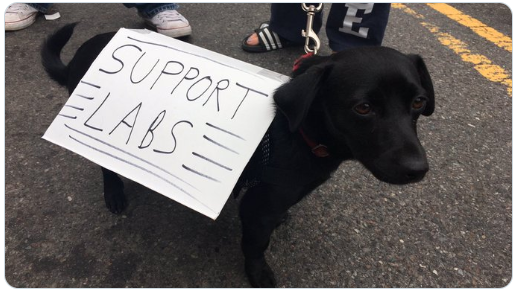 SUPPORT
LABS